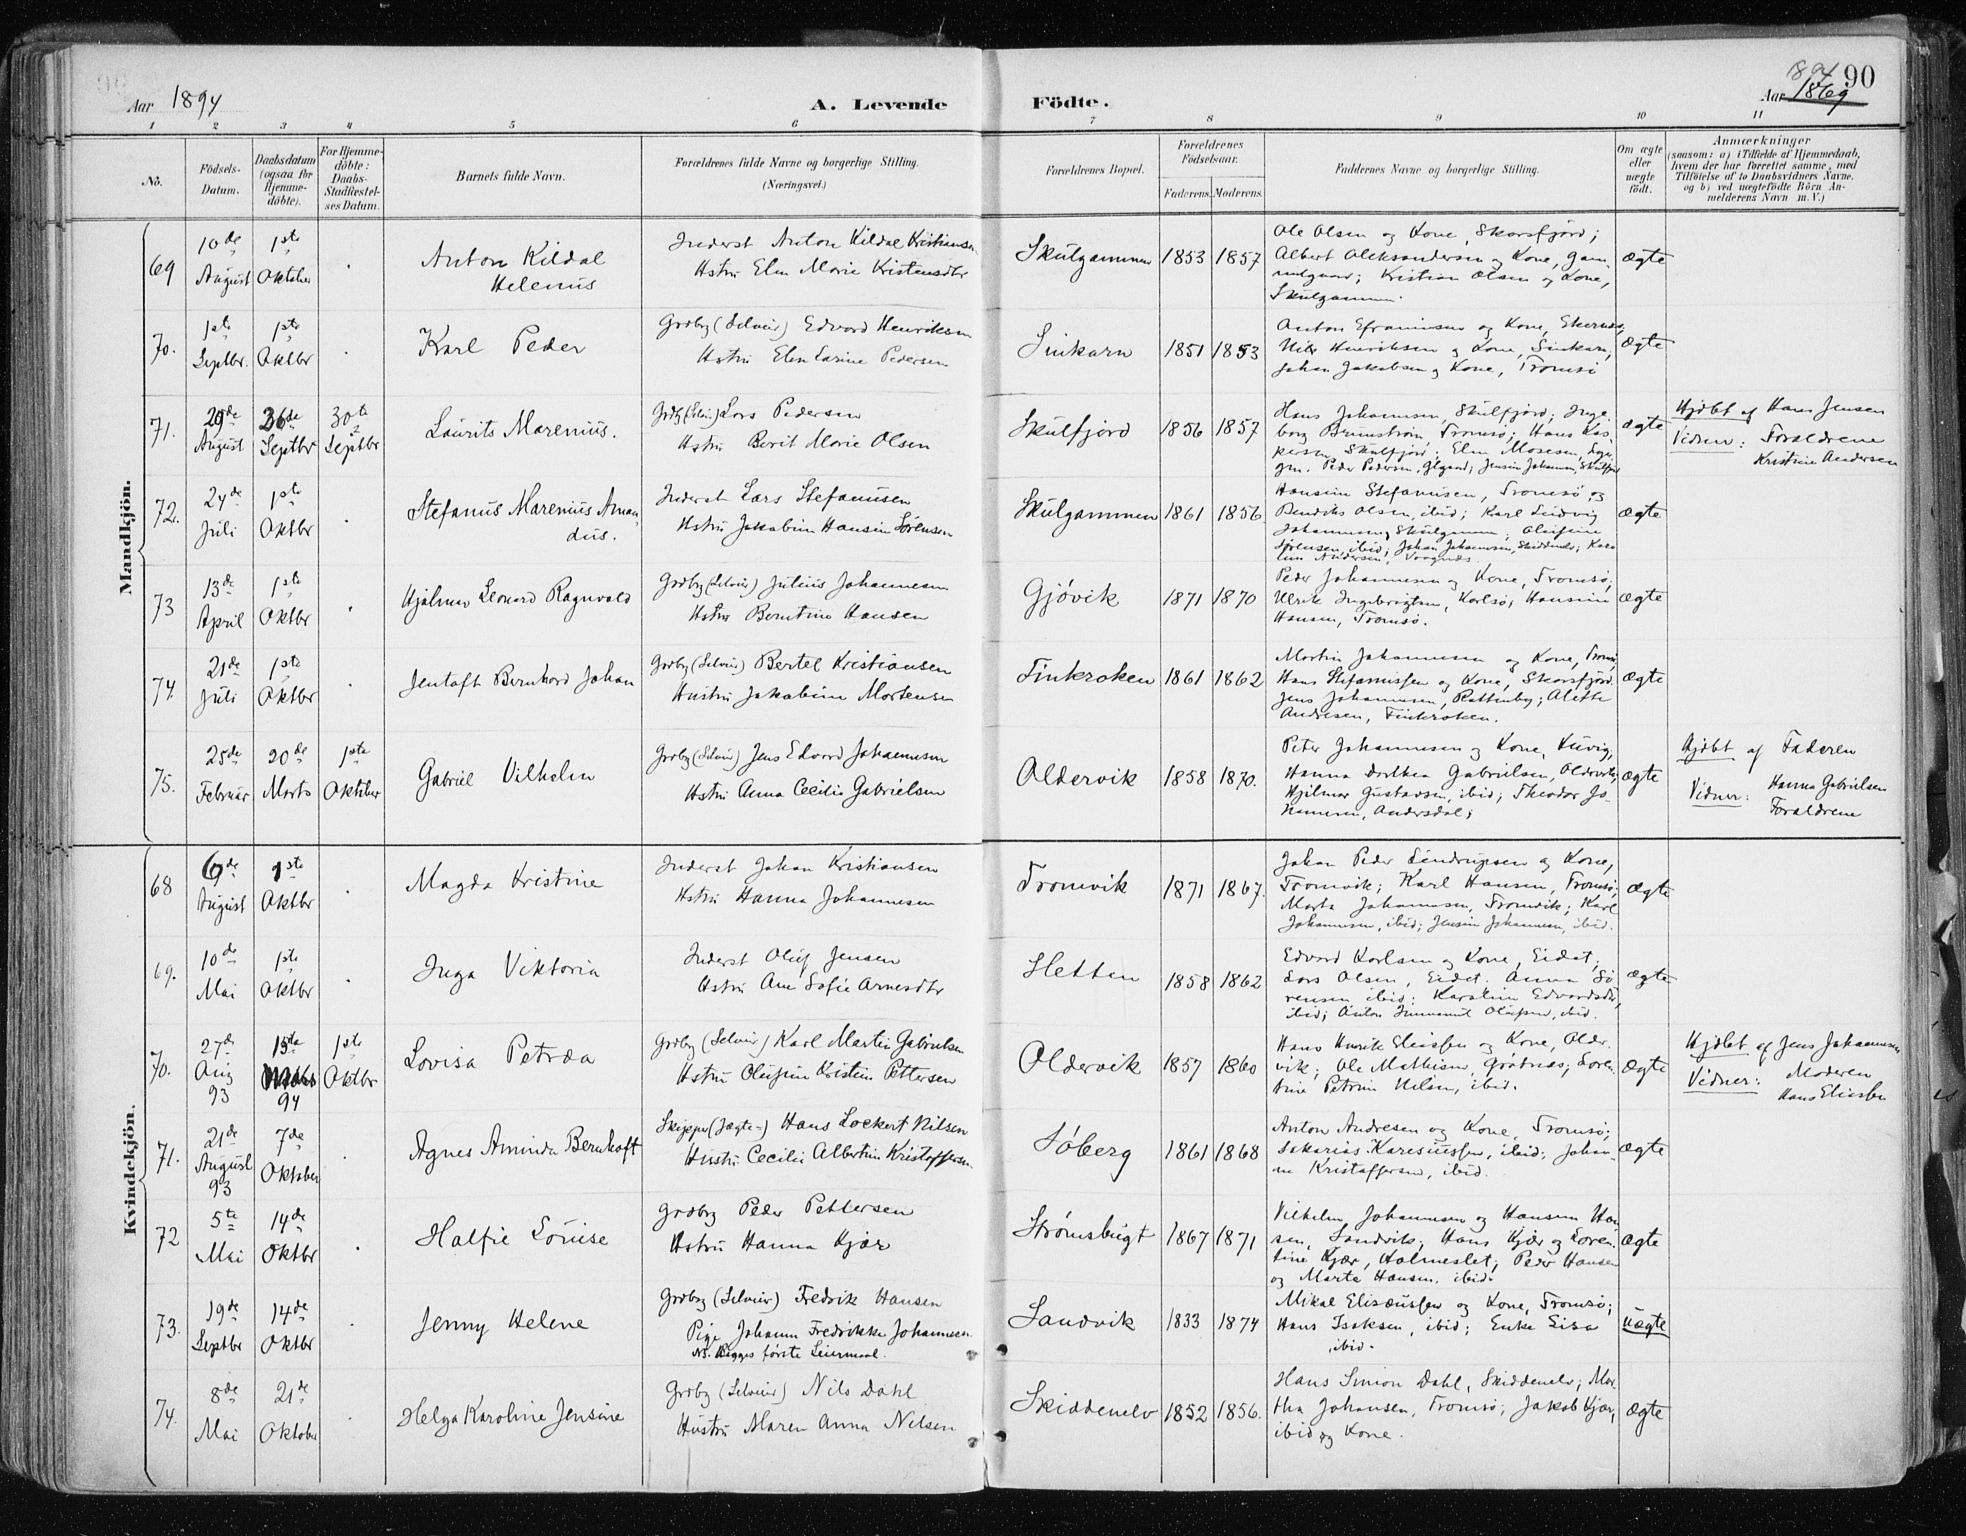 Aar 1894
A. Levende Födte.
1894 90
Aar 1869
1 2 3 4 5 6 7 8 9 10 11
No.
Födsels-
Datum.
Daabsdatum
(ogsaa for
Hjemme-
döbte).
For Hjemme-
döbte:
Daabs-
Stadfæstel-
ses Datum.
Barnets fulde Navn.
Forældrenes fulde Navne og borgerlige Stilling.
(Næringsvei.)
Forældrenes Bopæl.
Forældrenes
Födselsaar.
Faderens. Moderens.
Faddernes Navne og borgerlige Stilling.
Om ægte
eller
uægte
født.
Anmærkninger
(saasom: a) i Tilfælde af Hjemmedaab,
hvem der har forrettet samme, med
Tilföielse af to Daabsvidners Navne,
og b) ved uægtefödte Börn An-
melderens Navn m. V.)
Mandkjön.
69
10de
August
1ste
Oktober
Anton Kildal
Helenius
Inderst Anton Kildal Kristiansen
Hstru Elen Marie Kristensdtr
Skulgammen
1853 1857
Ole Olsen og Kone, Skarsfjord;
Albert Aleksandersen og Kone, Gam-
melgaard; Kristian Olsen og Kone,
Skulgammen.
ægte
70.
1ste
Septbr.
1ste
Oktbr
Karl Peder
Grdbg (Selveier) Edvard Henriksen
Hstru Elen Larine Pedersen
Sinkarn
1851 1853
Anton Efraimsen og Kone,
Nils Henriksen og Kone, Sinkarn;
Johan Jakobsen og Kone, Tromsö
ægte
71.
29de
August
26de
Septbr
30te
Septbr
Laurits Marenius.
Grdbg (Selv) Lars Pedersen
Hstru Berit Marie Olsen
Skulfjord
1856 1857
Hans Johannesen, Skulfjord; Inge-
borg Brunström, Tromsö; Hans Kas-
persen Skulfjord; Elen Mosesen,
Peder Pedersen, Jensin Johannesen, Skulfjord
ægte
Hjdbt af Hans Jensen
Vidner: Forældrene
Kristine Andersen
72.
24de
Juli
1ste
Oktbr
Stefanus Marenius Aman-
dus.
Inderst Lars Stefanusen
Hstru Jakobine Hansine Sörensen
Skulgammen
1861 1856
Hansine Stefanusen, Tromsö og
Bendiks Olsen, ibid; Karl Ludvig
Johannesen, Skulgammen; Olufine
Sörensen, ibid; Johan Johannesen, Skiddenelv; Karo-
line Andersen, Vaagnæs.
ægte
73
13de
April
1ste
Oktbr
Hjalmar Leonard Ragnvald
Grdbg (Selveier) Julius Johannesen
Hstru Berntine Hansen
Gjövik
1871 1870
Peder Johannesen og Kone, Tromsö;
Ulrik Ingebrigtsen, Karlsö; Hansine
Hansen, Tromsö.
ægte
74.
21de
Juli
1ste
Oktbr
Jentoft Bernhard Johan
Grdbg (Selveier) Bertel Kristiansen
Hustru Jakobine Mortensen
Finkroken
1861 1862
Martin Johannesen og Kone,
Hans Stefanussen og Kone, Skarsfjord.
Jens Johannesen, Rottenby; Alette
Andresen, Finkroken.
ægte
75.
25de
Februar
20de
Marts
1ste
Oktober
Gabriel Vilhelm
Grdbg (Selveier) Jens Edvard Johannesen
Hstru Anna Cecilie Gabrielsen
Oldervik
1858 1870.
Peter Johannesen og Kone,
Hanna Dorthea Gabrielsen, Oldervik;
Hjilmar Gustavsen, ibid; Theodor Jo-
hannesen, Andersdal;
ægte
Hjdbt af Faderen
Vidner: Hanna Gabrielsen
Forældrene
Kvindekjön.
68
6de
August
1ste
Oktbr
Magda Kristine
Inderst Johan Kristiansen
Hstru Hanna Johannesen
Tromvik
1871 1867.
Johan Peder Lindrupsen og Kone,
Tromvik; Karl Hansen, Tromsö;
Marta Johannesen, Tromvik; Karl
Johannesen, ibid; Jensine Johannesen, ibid.
ægte
69.
10de
Mai
1ste
Oktbr
Inga Viktoria
Inderst Oluf Jensen
Hstru Ane Sofie Arnesdtr
Hetten
1858 1862
Edvard Karlsen og Kone, Eidet;
Lars Olsen, Eidet. Anna Sö-
rensen ibid; Karoline Edvardsdtr,
ibid; Anton Immanuel Olufsen, ibid.
ægte
70.
27de
Aug
93
1ste
Oktbr
94
Lovisa Petrea
Grdbg (Selveier) Karl Martin Gabrielsen
Hstru Olufine Kristine Pettersen
Oldervik
1857 1860
Hans Henrik Eliassen og Kone, Older-
vik; Ole Mathisen, Grötnæs; Loren-
tine Petrine Nilsen, ibid.
ægte
Hjdbt af Jens Johannesen
Vidner: Moderen
Hans Eliassen
71.
21de
August
93
7de
Oktober
Agnes Aminda Bernhoft
Skipper (Jægte-) Hans Lockert Nilsen
Hustru Cecilie Albertine Kristoffersen
Söberg
1861 1868
Anton Andresen og Kone, Tromsö;
Sakarias Karesiussen, ibid; Johan-
ne Kristoffersen, ibid.
ægte
72
5te
Mai
14de
Oktbr
Halfie Louise
Grdbg Peder Pettersen
Hstru Hanna Kjær
Strömsbugt
1867 1871
Vilhelm Johannesen og Hansine Han-
sen, Sandvik; Hans Kjær og Loren-
tine Kjær, Holmeslet; Peder Hansen
og Marta Hansen, ibid.
ægte
73.
19de
Septbr
14de
Oktbr
Jenny Helene
Grdbg (Selveier) Fredrik Hansen
Pige Johanna Fredrikke Johannesen
NB. Begges förste Leiermaal.
Sandvik
1833 1874
Mikal Elisæussen og Kone, Tromsö;
Hans Isaksen, ibid; Enke Lisa
ibid.
uægte
74.
8de
Mai
21de
Oktober
Helga Karoline Jensine
Grdbg (Selveier) Nils Dahl
Hustru Maren Anna Nilsen
Skiddenelv
1852 1856.
Hans Simon Dahl, Skiddenelv; Mar-
tha Johansen, Tromsö; Jakob Kjær,
ibid og Kone.
ægte